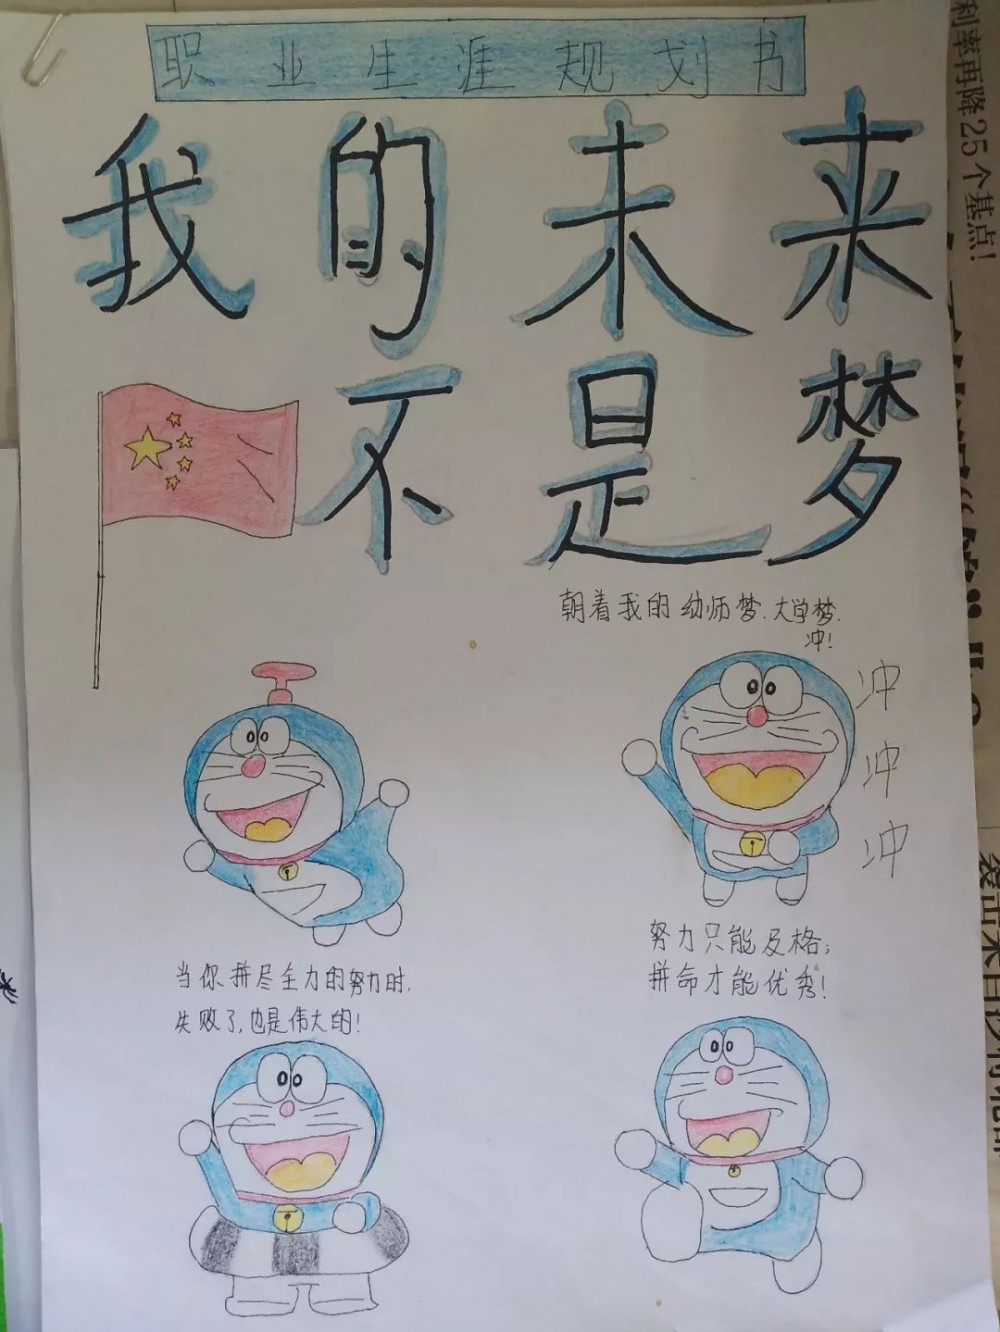 职业生涯规划书
我的未来
不是梦
朝着我的幼师梦.大学梦.
冲!
冲
冲
冲
努力只能及格;
拼命才能优秀!
当你拼尽全力的努力时.
失败了,也是伟大的!
利率再降25个基点!